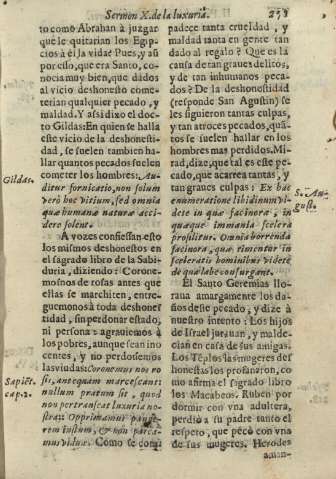 Sermon X. de la luxuria. 258
to como Abrahan à juzgar
que le quitarian los Egip-
cios à èl la vida? Pues, y assi
por cito, que era Santo, co-
nocia muy bien, que dados
al vicio deshonesto come-
terian qualquier pecado, y
maldad. Y assi dixo el doc-
to Gildas: En quien se halla
este vicio de la deshonesti-
dad, se suelen tambien ha-
llar quantos pecados suelen
cometer los hombres: Au-
ditur fornicatio, non solum
verò hoc vitium, sed omnia
quæ humanæ naturæ acci-
dere solent.
A vozes confiessan esto
los mismos deshonestos en
el sagrado libro de la Sabi-
duria, diziendo: Corone-
monos de rosas antes que
ellas se marchiten, entre-
guemonos à toda deshones
tidad, sin perdonar estado,
ni persona: agraviemos à
los pobres, aunque sean ino
centes, y no perdonemos
las viudas: Coronemus nos ro
sis, antequam marcescant:
nullum pratum sit, quod
non pertranseat luxuria no-
stra: Opprimamus paupe-
rem iustum, & non parca-
mus viduæ. Como se com-
Gildas.
Sapiẽt.
cap. 2.
padece tanta crueldad, y
maldad tanta en gente tan
dada al regalo? Que es la
causa de tan graves delitos,
y de tan inhumanos peca-
dos? De la deshonestidad
(responde San Agustin) se
les siguieron tantas culpas,
y tan atroces pecados, quã-
tos se suelen hallar en los
hombres mas perdidos. Mi-
rad, dize, que tal es este pe-
cado, que acarrea tantas, y
tan graves culpas: Ex hac
enumeratione libidinum vi-
dete in quæ facinora, in
quæque immania scelera
prosilitur. Omnia horrenda
facinora, quæ rimentur in
sceleratis hominibus videte
de qua labe consurgant.
El Santo Geremias llo-
rava amargamente los da-
ños deste pecado, y dize à
nuestro intento: Los hijos
de Israel juravan, y malde-
cian en casa de sus amigas.
Los Tẽplos las mugeres des
honestas los profanaron, co
mo afirma el sagrado libro
los Macabeos. Ruben por
dormir con vna adultera,
perdiò a su padre tanto el
respeto, que pecò con vna
de sus mugeres. Herodes
aman-
S. Au-
gust.